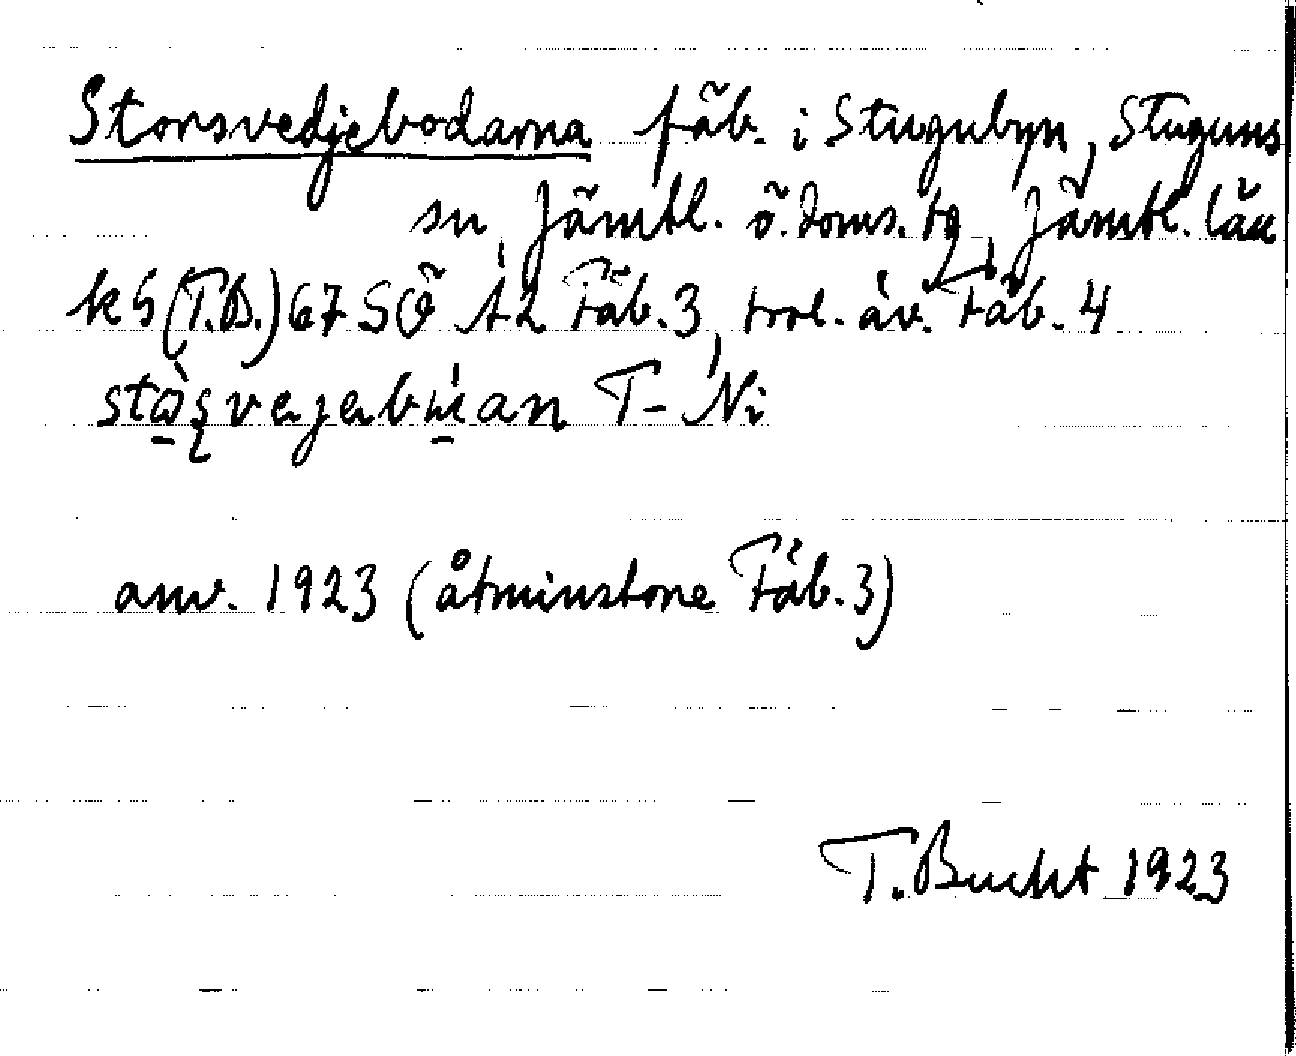 Storsvedjebodarna fäb. i Stugubyn, Stuguns
sn, Jämtl. ö. doms. tg, Jämtl. län
kS (T.B.) 67 SÖ A2 Fäb. 3, trol. äv. Fäb. 4
T- Ni
anv. 1923 (åtminstone Fäb. 3)
T. Bucht 1923